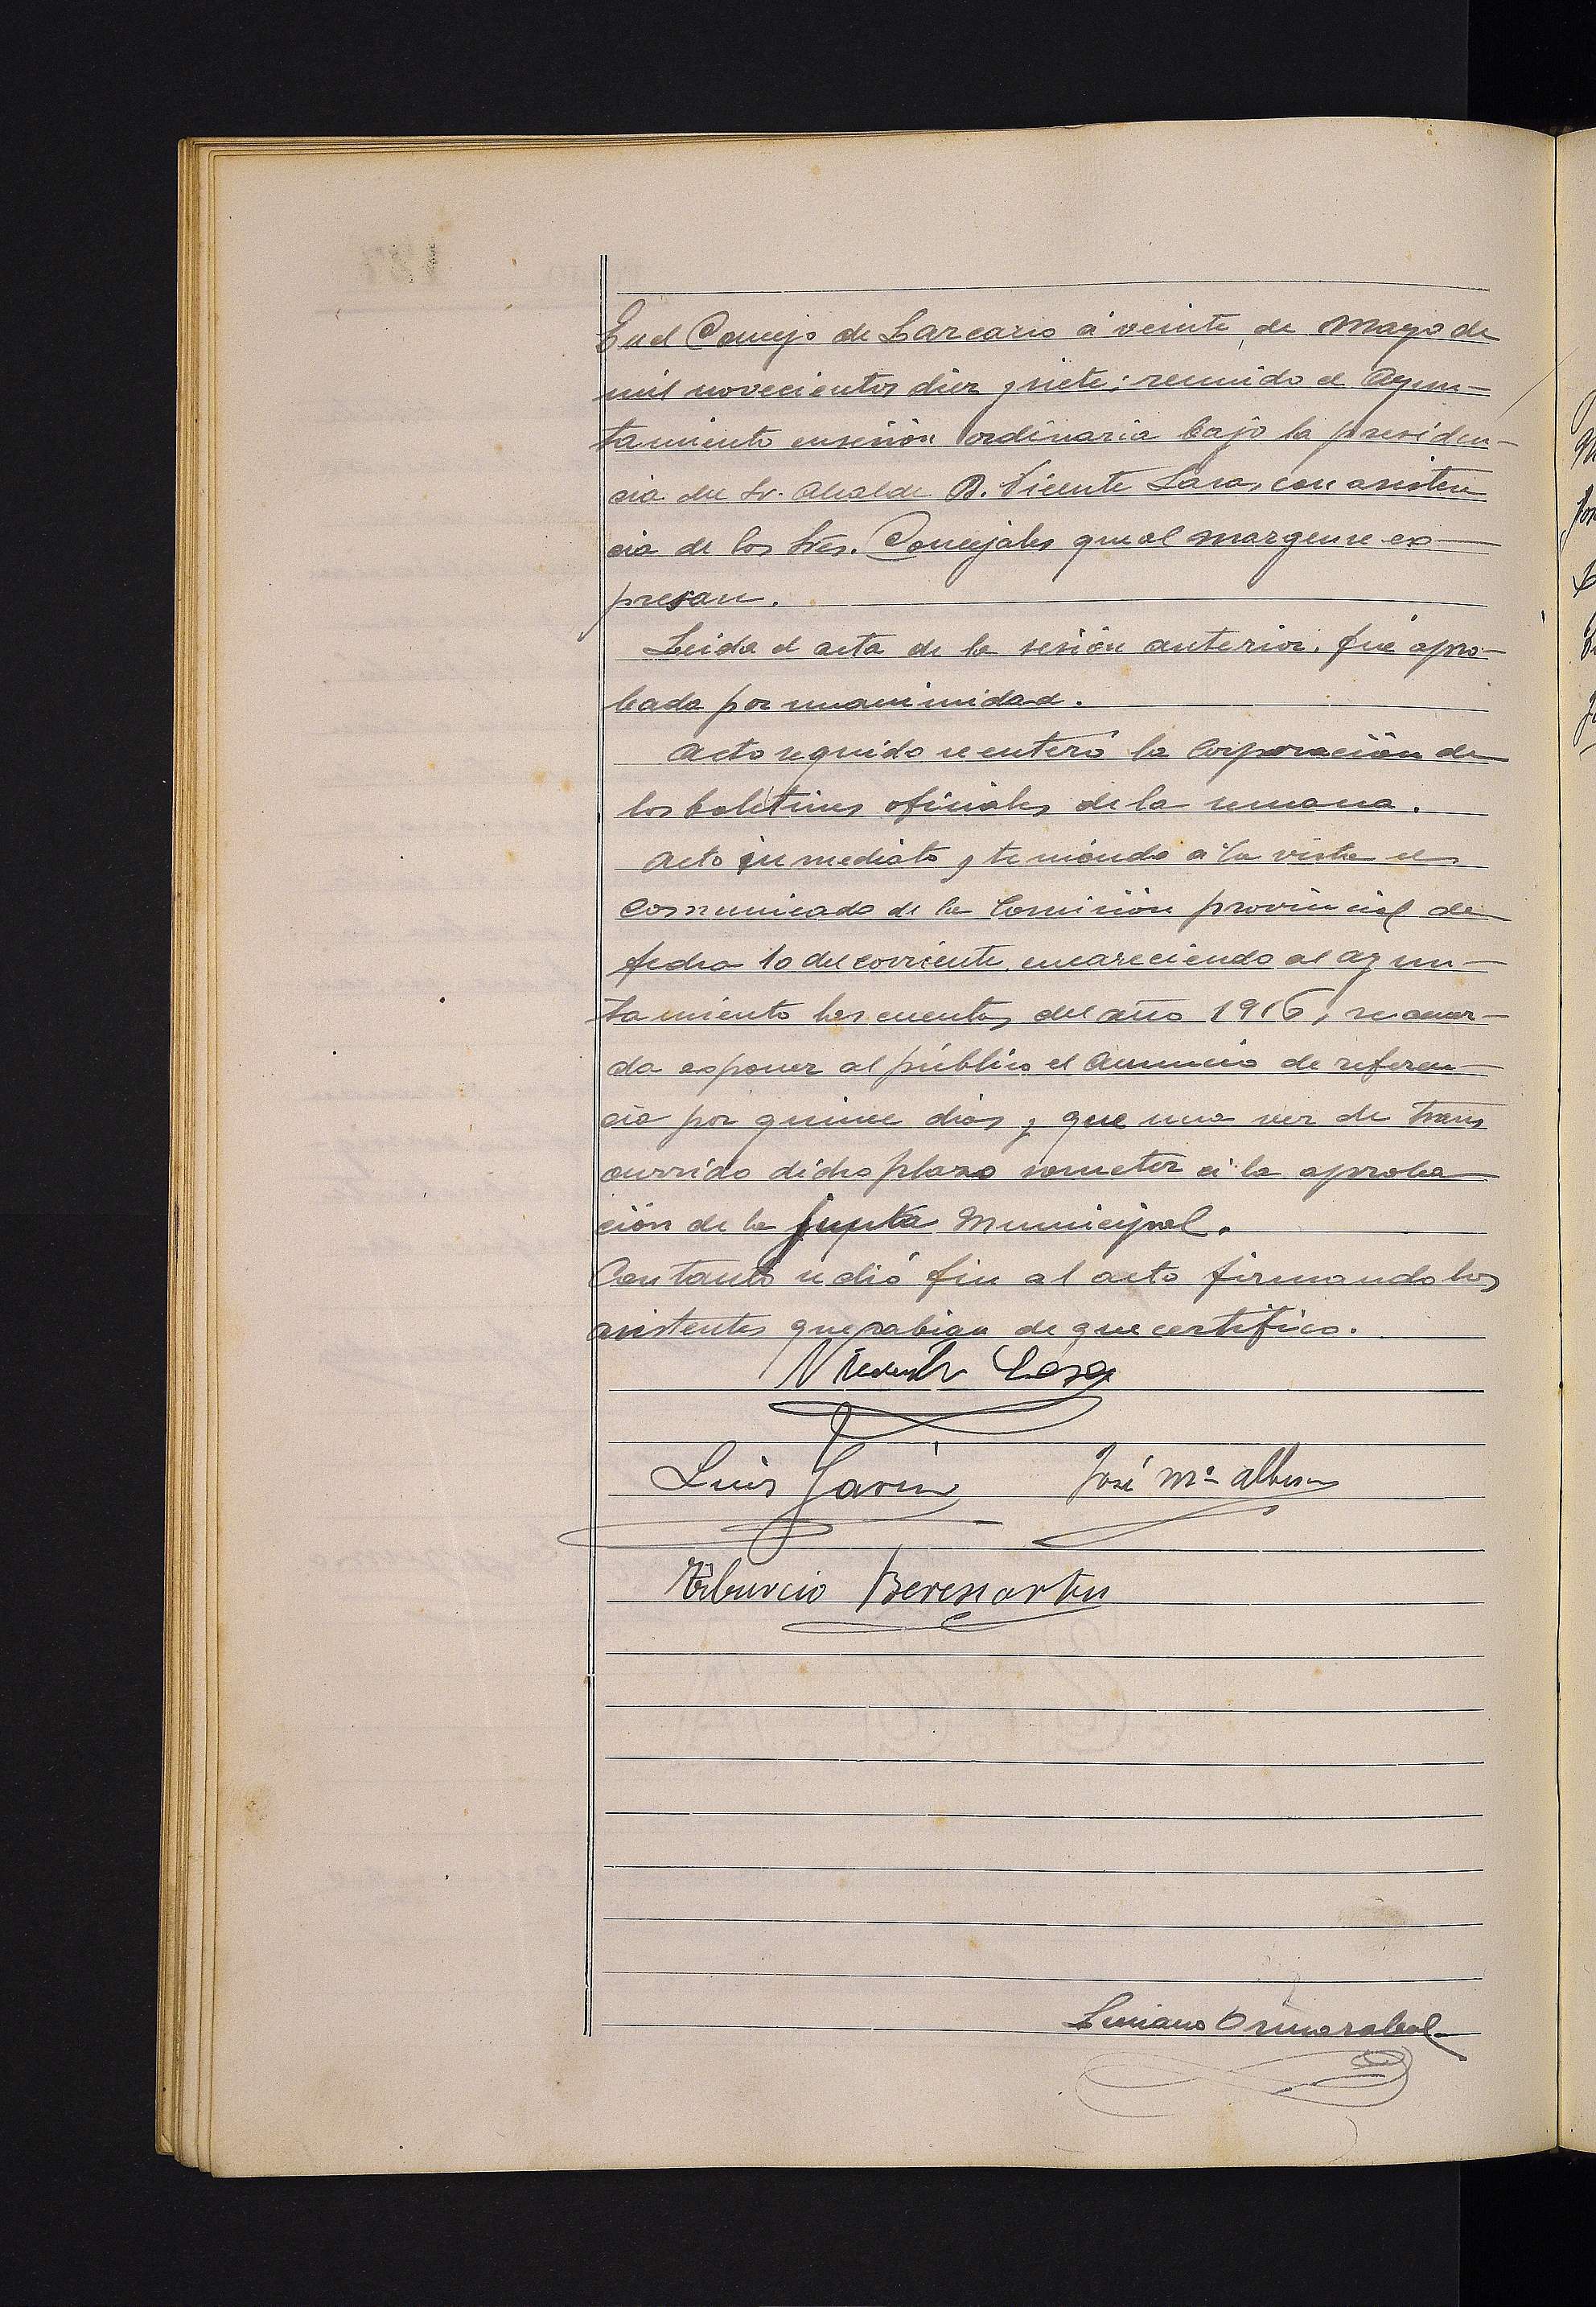 En el Concejo de Larcano á veinte, de Mayo de
mil novecientos diez y siete; reunido el Ayun-
tamiento en sesión ordinaria bajo la presiden-
cia del Sr. Alcalde D. Vicente Lasa, con asisten
cia de los Sres. Concejales que al margen se ex-
presan.
Leida el acta de la sesión anterior, fué apro-
bada por unanimidad.
Acto seguido se enteró la Corporación de
los boletines oficiales de la semana.
Acto inmediato y teniendo á la vista el
comunicado de la Comisión provincial de
fecha 10 del corriente, encareciendo al ayun-
tamiento las cuentas del año 1916, se acuer-
da exponer al público el anuncio de referen-
cia por quince dias y que una vez de trans
currido dicho plazo someter á la aproba
ción de la Junta Municipal.
Con tanto se dió fin al acto firmando los
asistentes que sabian de que certifico.
Vicente Lasa
Luis Gavin José Mª
Tiburcio Beresiartu
Luciano Ormazabal